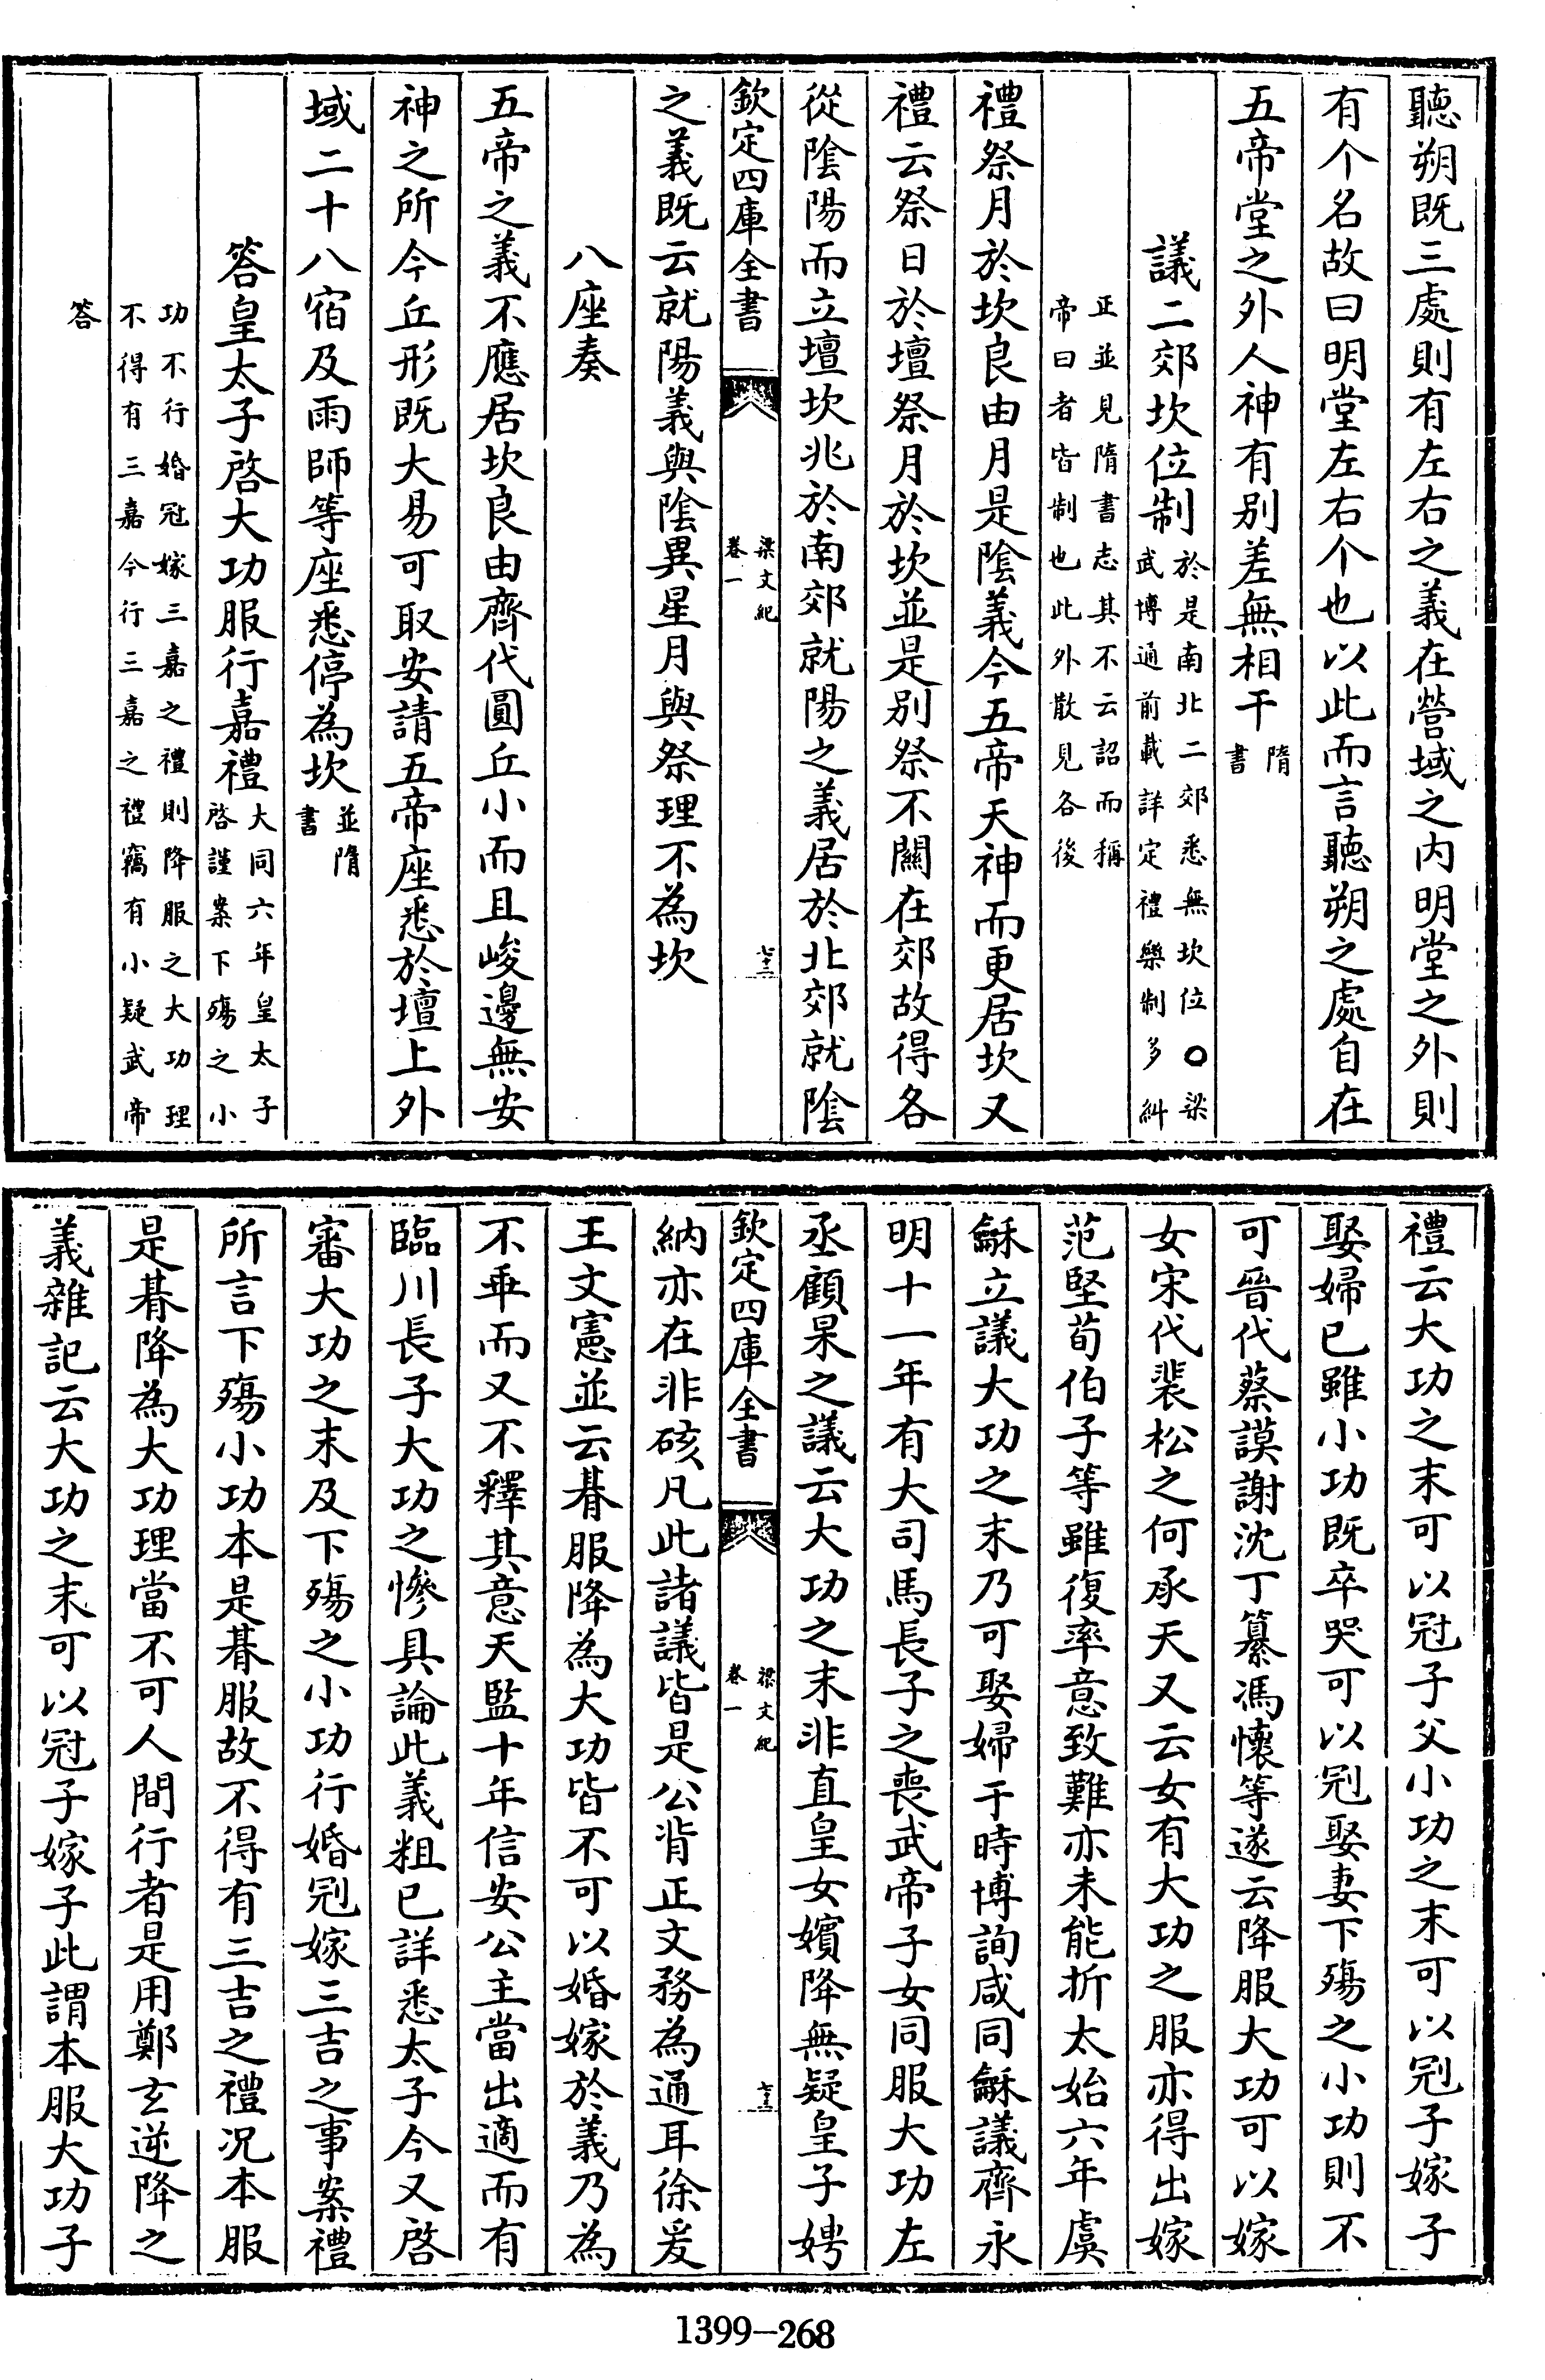 聽朔既三處則有左右之義在營域之内明堂之外則
有个名故曰明堂左右个也以此而言聽朔之處自在
五帝堂之外人神有别差無相干隋
書
議二郊坎位制於是南北二郊悉無坎位○梁
武博通前載詳定禮樂制多糾
正並見隋書志其不云詔而稱
帝曰者皆制也此外散見各後
禮祭月於坎良由月是陰義今五帝天神而更居坎又
禮云祭日於壇祭月於坎並是别祭不關在郊故得各
從陰陽而立壇坎兆於南郊就陽之義居於北郊就陰
欽定四庫全書
梁文紀
卷一
七十二
之義既云就陽義與陰異星月與祭理不為坎
八座奏
五帝之義不應居坎良由齊代圓丘小而且峻邊無安
神之所今丘形既大易可取安請五帝座悉於壇上外
域二十八宿及雨師等座悉停為坎並隋
書
答皇太子啓大功服行嘉禮大同六年皇太子
啓謹案下殤之小
功不行婚冠嫁三嘉之禮則降服之大功理
不得有三嘉今行三嘉之禮竊有小疑武帝
答
禮云大功之末可以冠子父小功之末可以冠子嫁子
娶婦已雖小功既卒哭可以冠娶妻下殤之小功則不
可晉代蔡謨謝沈丁纂馮懷等遂云降服大功可以嫁
女宋代裴松之何承天又云女有大功之服亦得出嫁
范堅荀伯子等雖復率意致難亦未能折太始六年虞
龢立議大功之末乃可娶婦于時博詢咸同龢議齊永
明十一年有大司馬長子之喪武帝子女同服大功左
丞顧杲之議云大功之末非直皇女嬪降無疑皇子娉
欽定四庫全書
梁文紀
卷一
七十三
納亦在非硋凡此諸議皆是公背正文務為通耳徐爰
王文憲並云朞服降為大功皆不可以婚嫁於義乃為
不乖而又不釋其意天監十年信安公主當出適而有
臨川長子大功之慘具論此義粗已詳悉太子今又啓
審大功之末及下殤之小功行婚冠嫁三吉之事案禮
所言下殤小功本是朞服故不得有三吉之禮况本服
是朞降為大功理當不可人間行者是用鄭玄逆降之
義雜記云大功之末可以冠子嫁子此謂本服大功子
1399-268